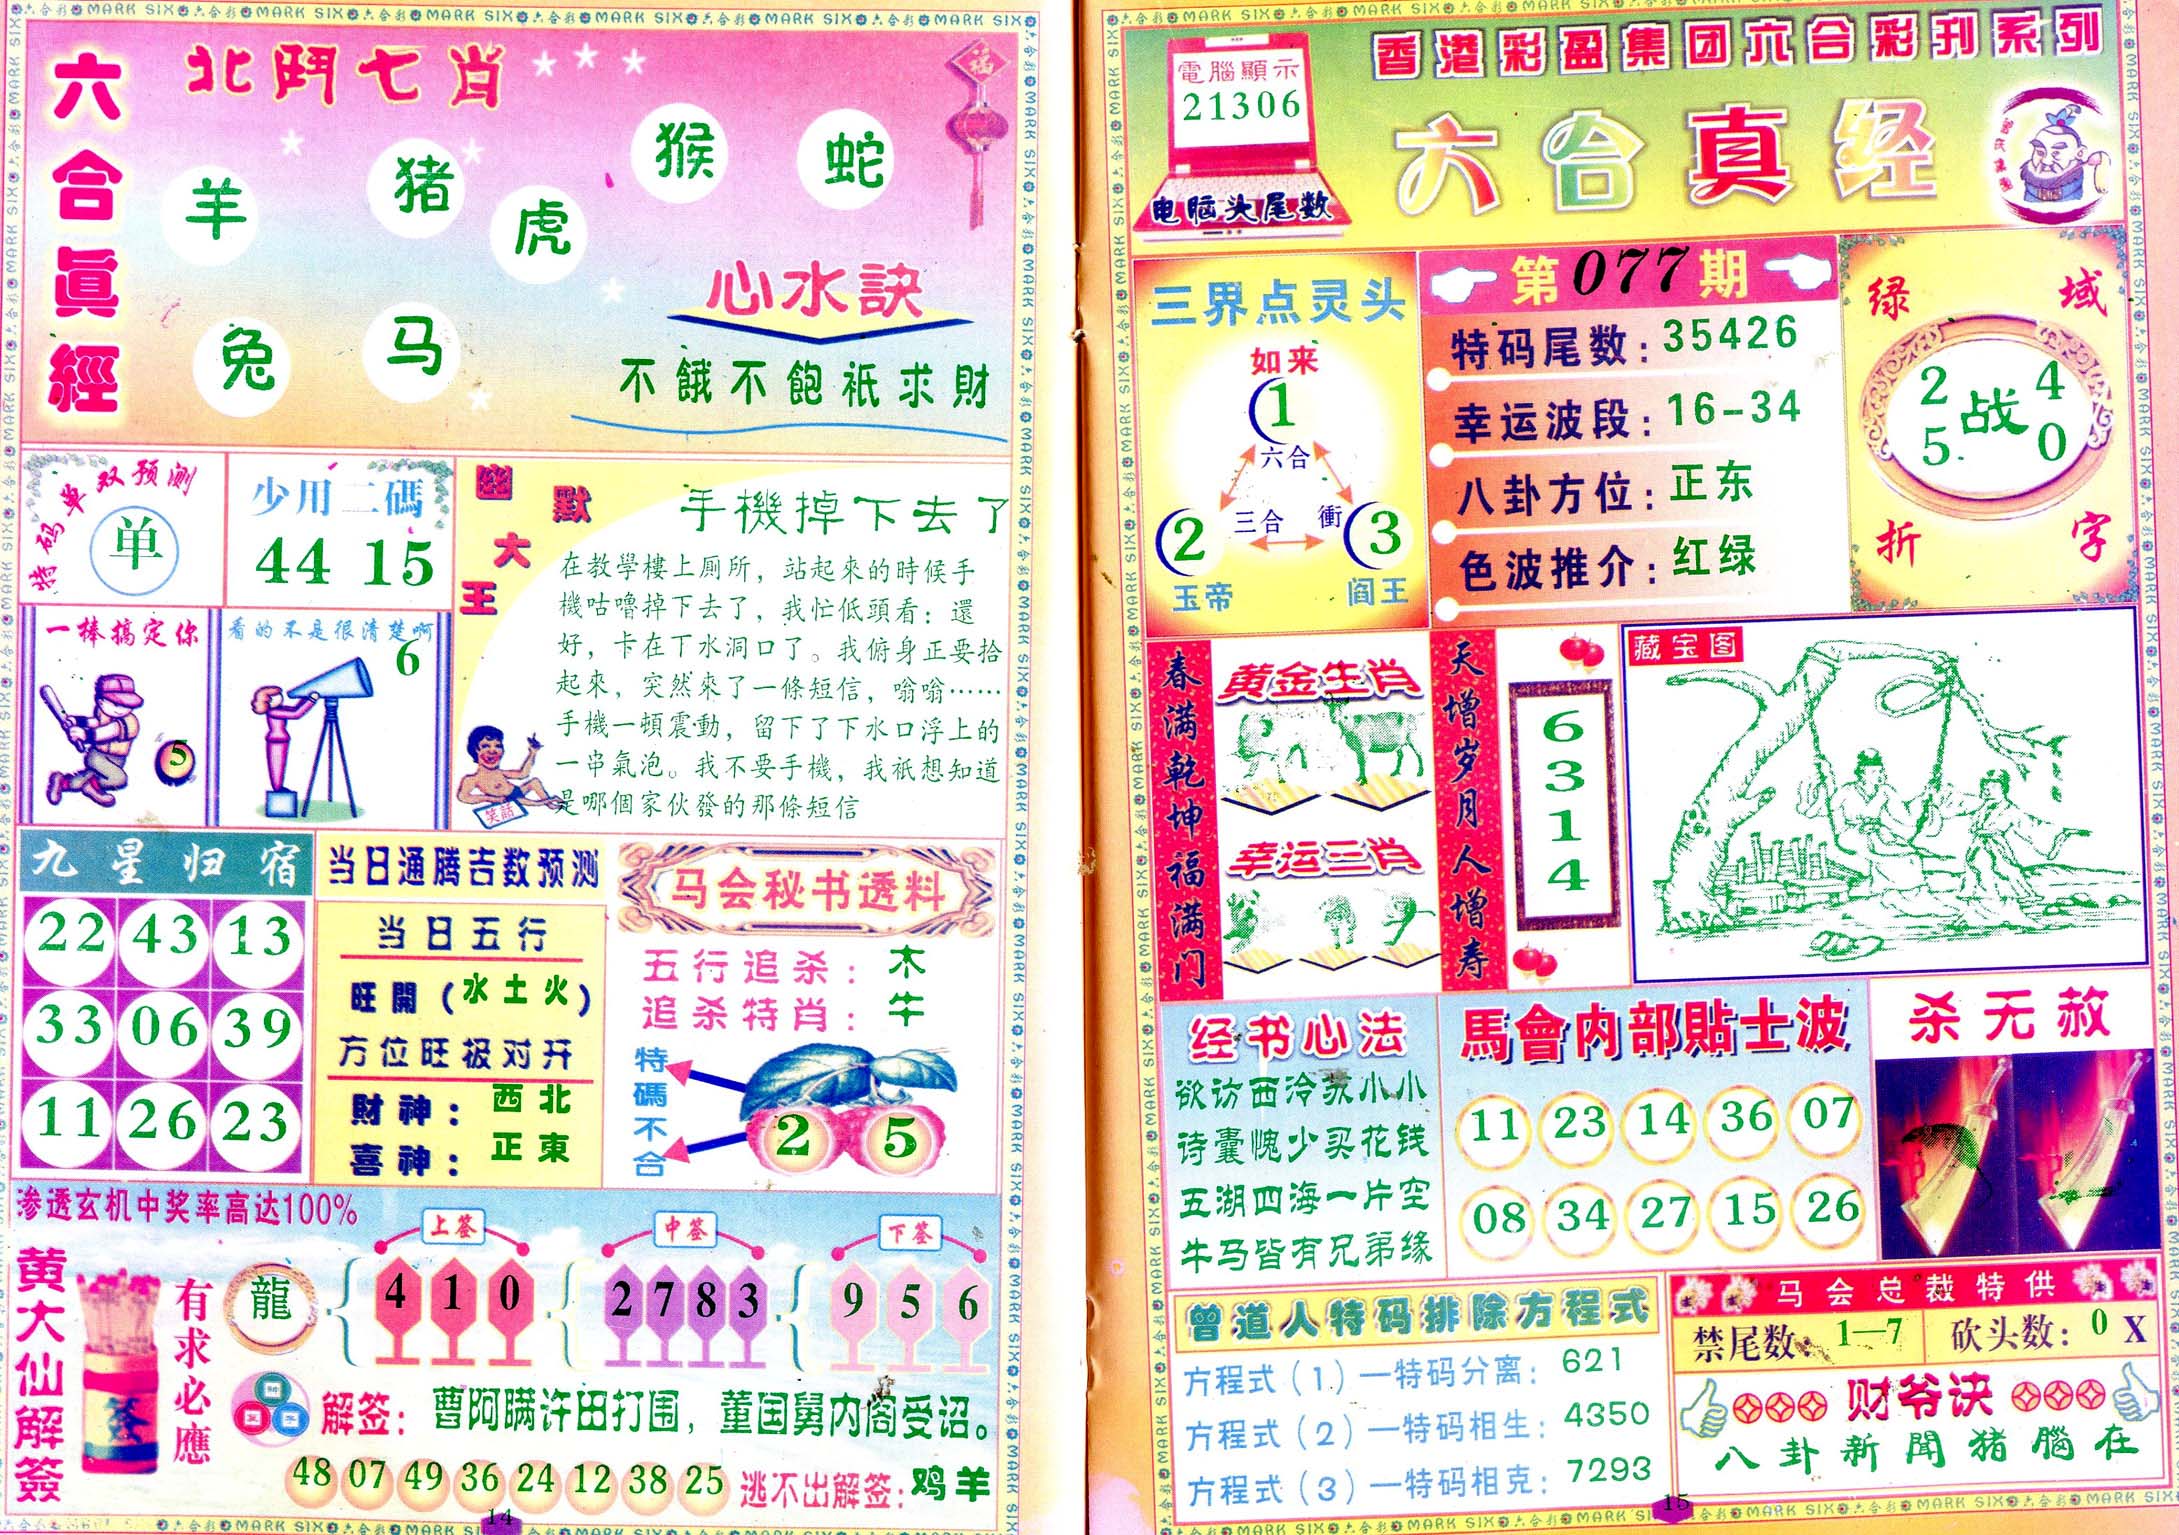 六合真經
北鬥七肖
羊
猪
虎
猴
蛇
兔
马
心水訣
不餓不飽祇求財
特码单双预测
单
少用二碼
44 15
一棒搞定你
5
看的不是很清楚啊
6
幽默大王
手機掉下去了
在教學樓上厠所，站起來的時候手
機咕嚕掉下去了，我忙低頭看：還
好，卡在下水洞口了。我俯身正要拾
起來，突然來了一條短信，嗡嗡……
手機一頓震動，留下了下水口浮上的
一串氣泡。我不要手機，我祇想知道
是哪個家伙發的那條短信
笑話
九星归宿
22 43 13
33 06 39
11 26 23
当日通腾吉数预测
当日五行
旺開（水土火）
方位旺极对开
財神：西北
喜神：正東
马会秘书透料
五行追杀：木
追杀特肖：牛
特碼不合
2 5
渗透玄机中奖率高达100%
黄大仙解簽
签
有求必應
龍
上签
4 1 0
中签
2 7 8 3
下签
9 5 6
解签：曹阿瞒许田打围，董国舅内阁受诏。
48 07 49 36 24 12 38 25
逃不出解签：鸡羊
14
香港彩盈集团六合彩刊系列
電腦顯示
21306
电脑头尾数
六合真经
三界点灵头
如来
1
六合
三合
衝
2
玉帝
3
阎王
第077期
特码尾数：35426
幸运波段：16-34
八卦方位：正东
色波推介：红绿
绿域
2 4
战
5 0
折字
春满乾坤福满门
黄金生肖
幸运三肖
天增岁月人增寿
6
3
1
4
藏宝图
经书心法
欲访西泠苏小小
诗囊愧少买花钱
五湖四海一片空
牛马皆有兄弟缘
馬會内部貼士波
11 23 14 36 07
08 34 27 15 26
杀无赦
曾道人特码排除方程式
方程式（1）—特码分离：621
方程式（2）—特码相生：4350
方程式（3）—特码相克：7293
马会总裁特供
禁尾数：1—7
砍头数：0 X
财爷诀
八卦新聞猪腦在
15